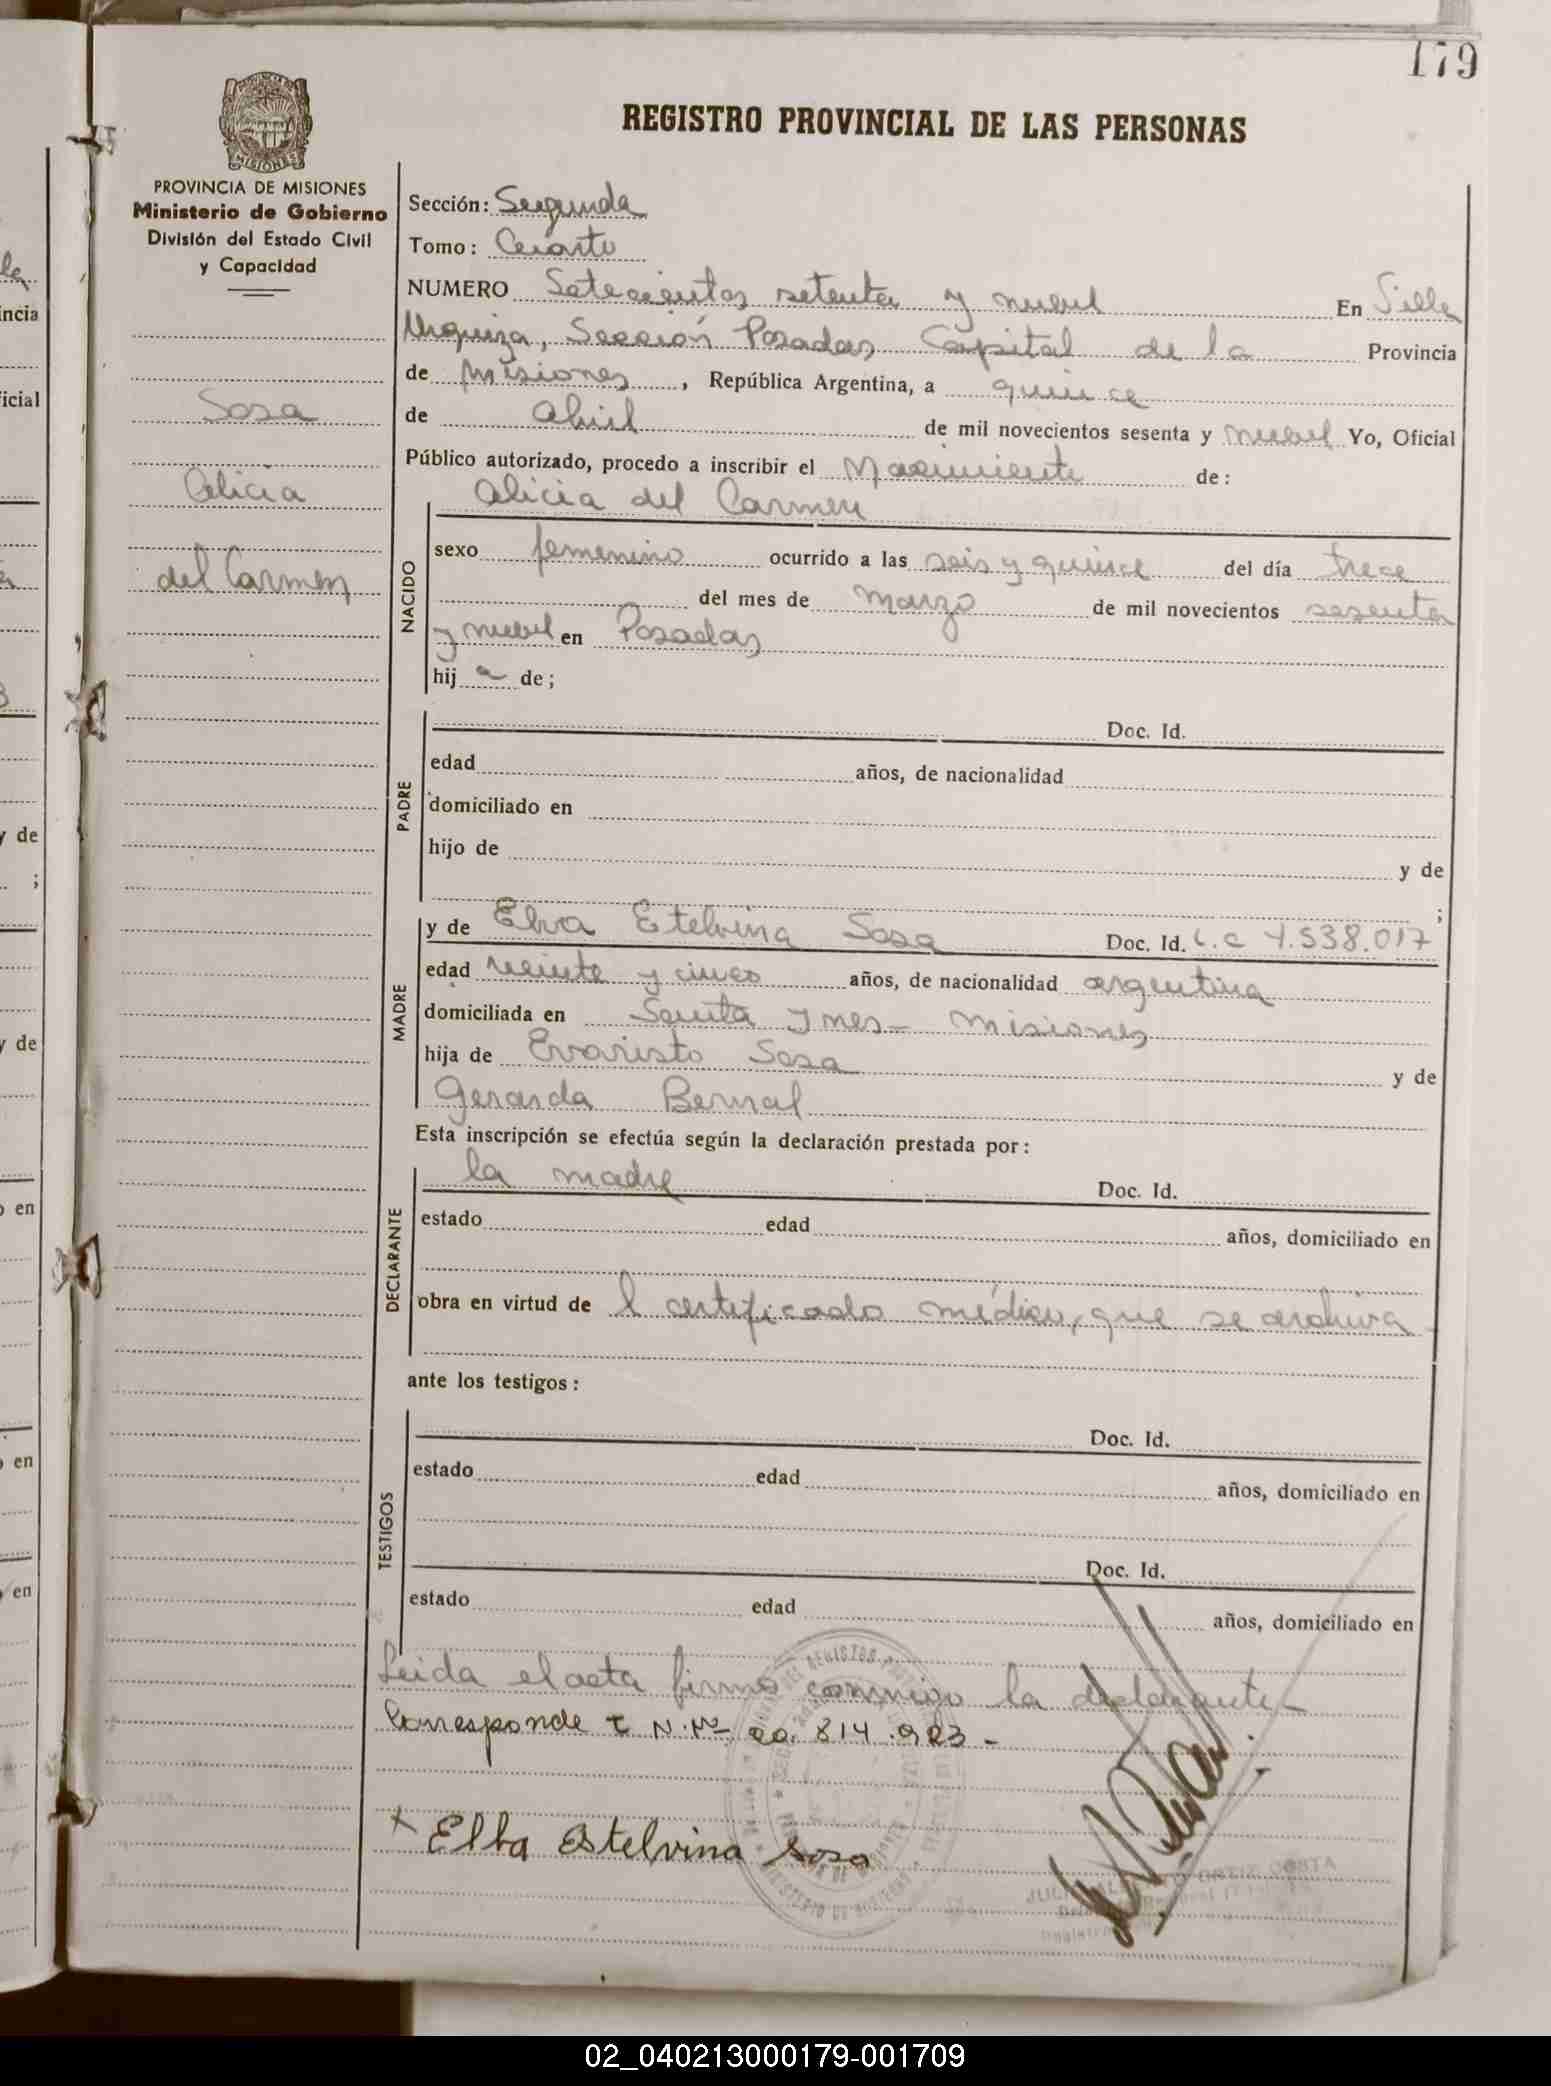 179
PROVINCIA DE MISIONES
Ministerio de Gobierno
División del Estado Civil
y Capacidad
Sosa
Alicia
del Carmen
REGISTRO PROVINCIAL DE LAS PERSONAS
Sección: Segunda
Tomo: Cuarto
NUMERO Setecientos setenta y nueve En Villa
Urquiza, Sección Posadas Capital de la Provincia
de Misiones, República Argentina, a quince
de abril de mil novecientos sesenta y nueve Yo, Oficial
Público autorizado, procedo a inscribir el Nacimiento de:
Alicia del Carmen
NACIDO
sexo femenino ocurrido a las seis y quince del día trece
del mes de marzo de mil novecientos sesenta
y nueve en Posadas
hij a de;
PADRE
Doc. Id.
edad años, de nacionalidad
domiciliado en
hijo de y de
;
MADRE
y de Elva Etelvina Sosa Doc. Id. L.C 4.538.017
edad veinte y cinco años, de nacionalidad argentina
domiciliada en Santa Ynes - Misiones
hija de Evaristo Sosa y de
Gerarda Bernal
Esta inscripción se efectúa según la declaración prestada por:
DECLARANTE
la madre Doc. Id.
estado edad años, domiciliado en
obra en virtud de l certificado médico, que se archiva
ante los testigos:
TESTIGOS
Doc. Id.
estado edad años, domiciliado en
Doc. Id.
estado edad años, domiciliado en
Leida el acta firma conmigo la declarante -
Corresponde N. Nº 20.814.923 -
x Elba Estelvina Sosa
ORTIZ COSTA
02_040213000179-001709